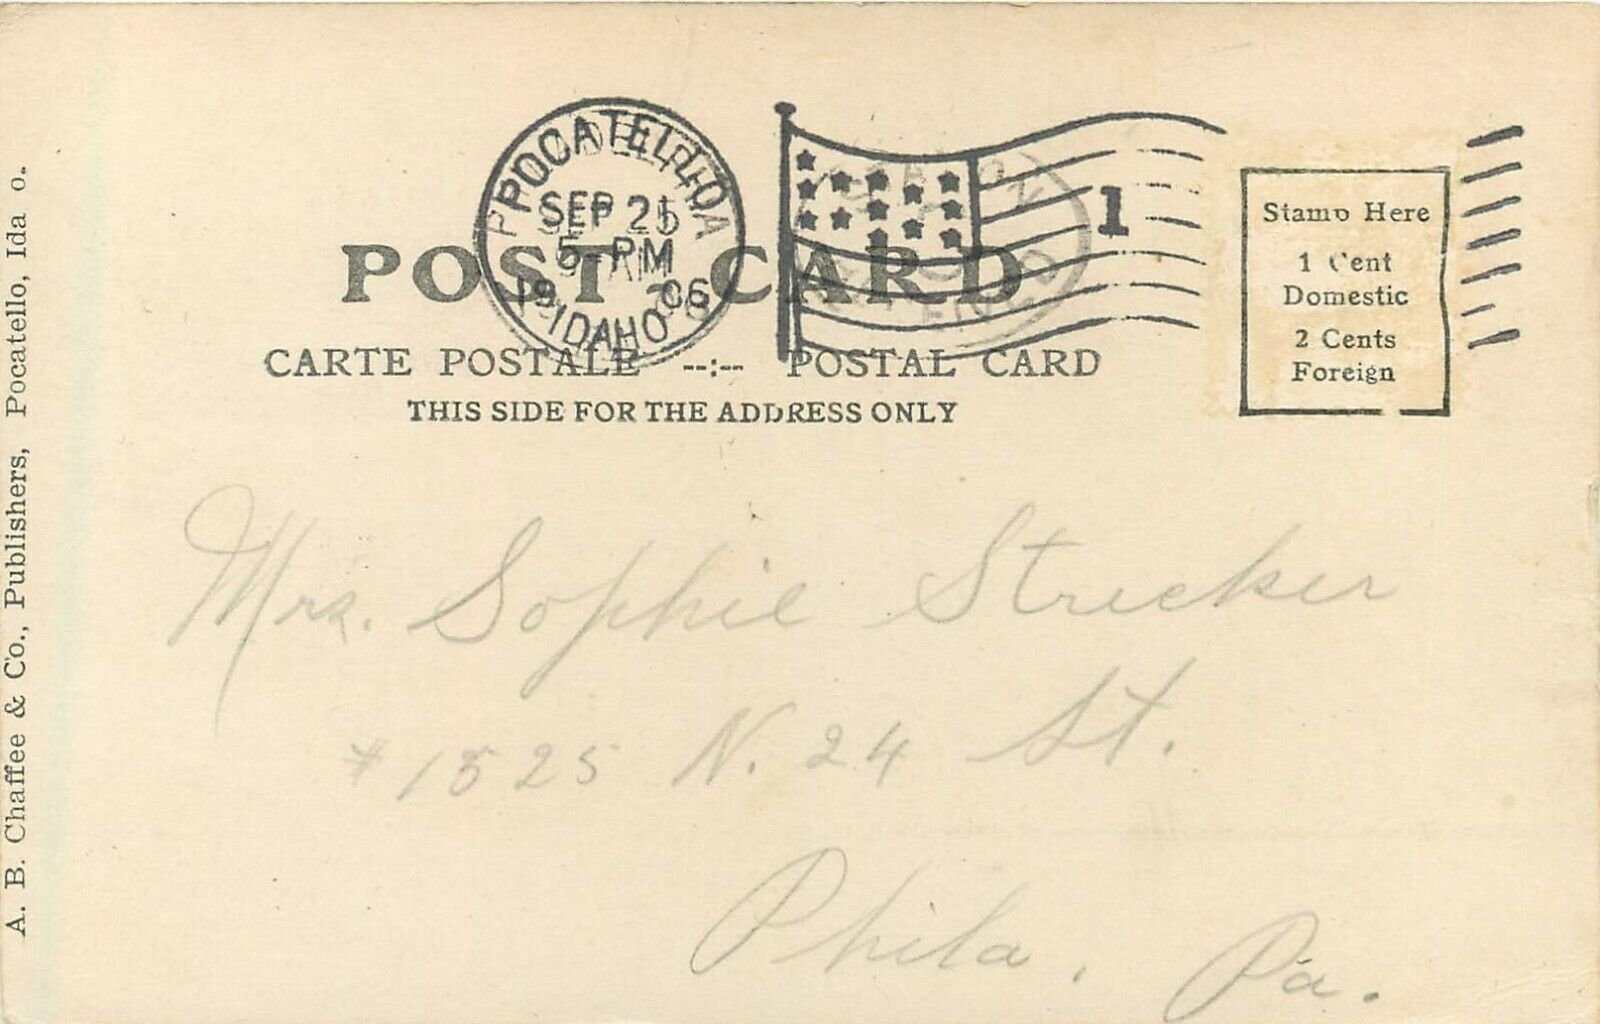 POCATELLO
SEP 21
5-PM
1906
IDAHO
1
POST CARD
CARTE POSTALE --:-- POSTAL CARD
THIS SIDE FOR THE ADDRESS ONLY
Stamp Here
1 Cent
Domestic
2 Cents
Foreign
Mrs. Sophie Strecker
#1525 N. 24 St.
Phila. Pa.
A. B. Chaffee & Co., Publishers, Pocatello, Ida o.